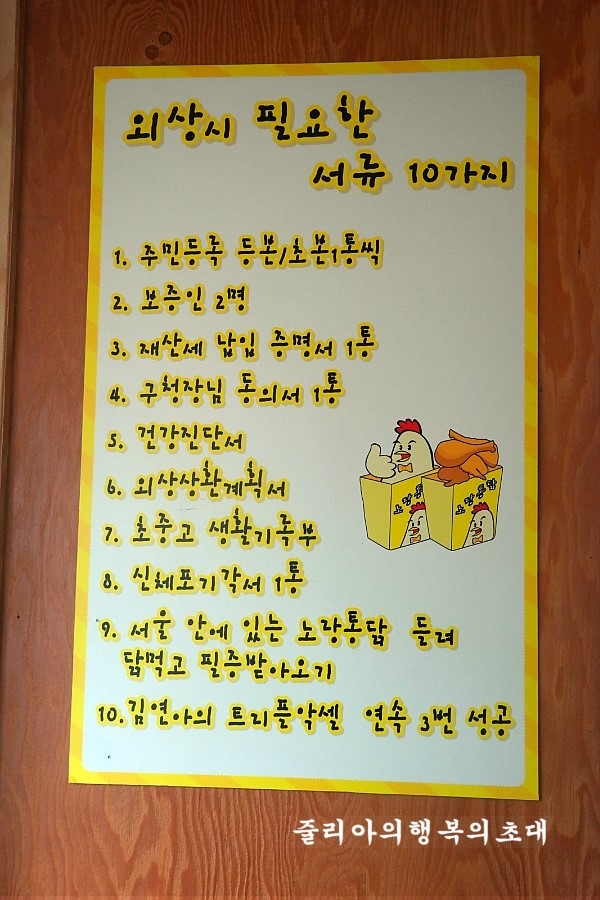 외상시 필요한
서류 10가지
1. 주민등록 등본/초본1통씩
2. 보증인 2명
3. 재산세 납입 증명서 1통
4. 구청장님 동의서 1통
5. 건강진단서
6. 외상상환계획서
7. 초중고 생활기록부
8. 신체포기각서 1통
9. 서울 안에 있는 노랑통닭 들려
닭먹고 필증받아오기
10. 김연아의 트리플악셀 연속 3번 성공
노랑통닭
노랑통닭
줄리아의행복의초대